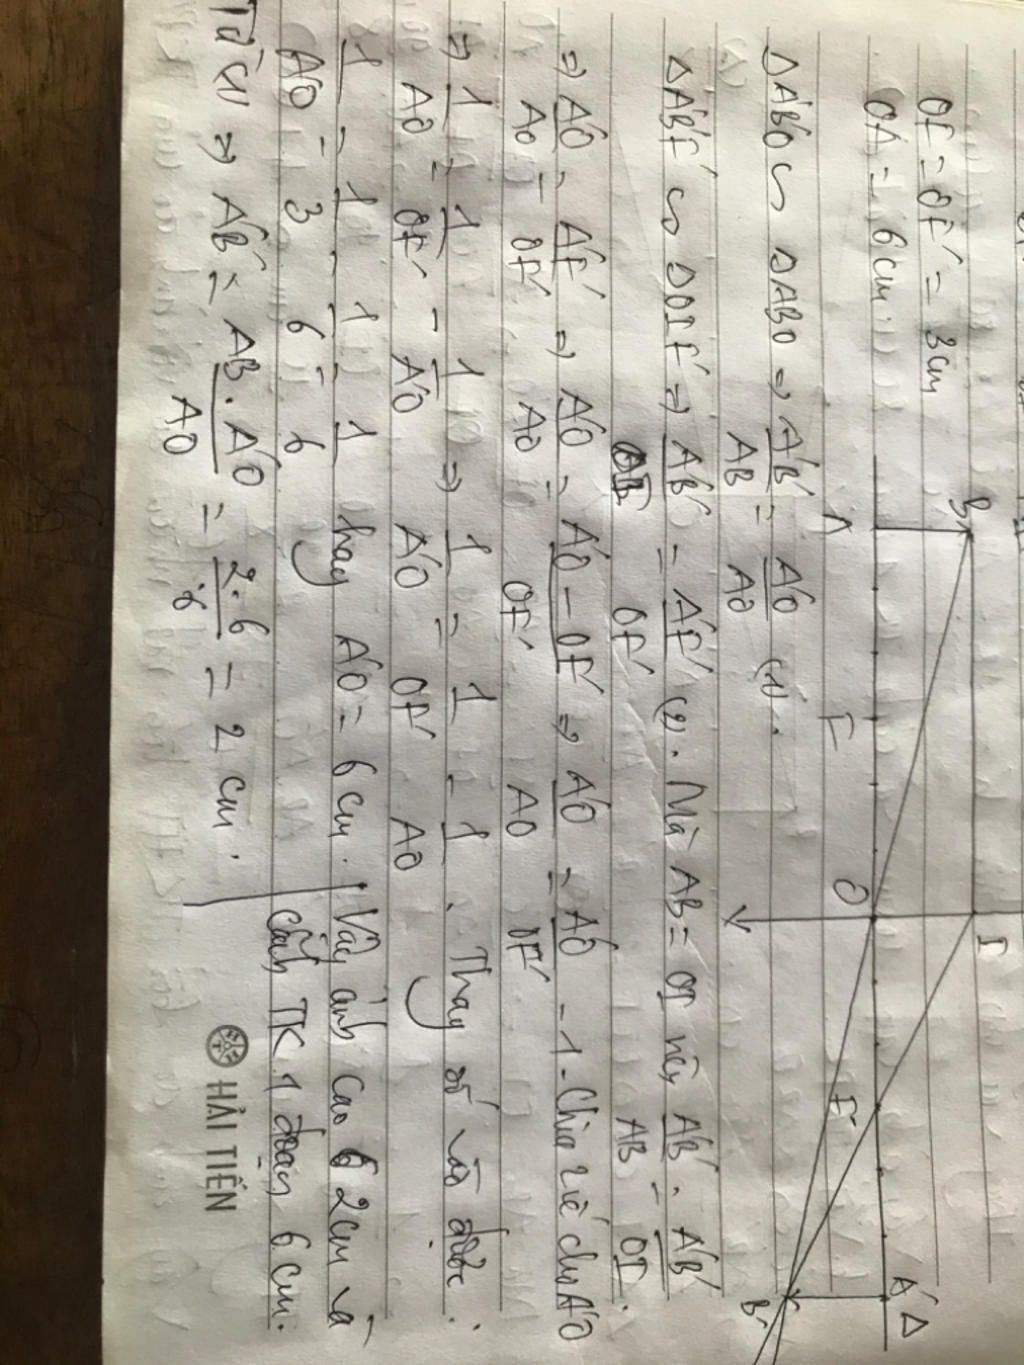 OF = OF' = 3cm
OA = 6cm.
B I
A F O F' A' Δ
B'
ΔA'B'O ∽ ΔABO ⇒ A'B'/AB = A'O/AO (1).
ΔA'B'F' ∽ ΔOIF' ⇒ A'B'/OI = A'F'/OF' (2). Mà AB = OI nên A'B'/AB = A'B'/OI.
⇒ A'O/AO = A'F'/OF' ⇒ A'O/AO = A'O - OF'/OF' ⇒ A'O/AO = A'O/OF' - 1. Chia 2 vế cho A'O
⇒ 1/AO = 1/OF' - 1/A'O ⇒ 1/A'O = 1/OF' - 1/AO. Thay số vào được:
1/A'O = 1/3 - 1/6 = 1/6 hay A'O = 6cm. Vậy ảnh cao 2cm và
cách TK 1 đoạn 6cm.
Từ (1) ⇒ A'B' = AB.A'O/AO = 2.6/6 = 2cm.
HẢI TIẾN